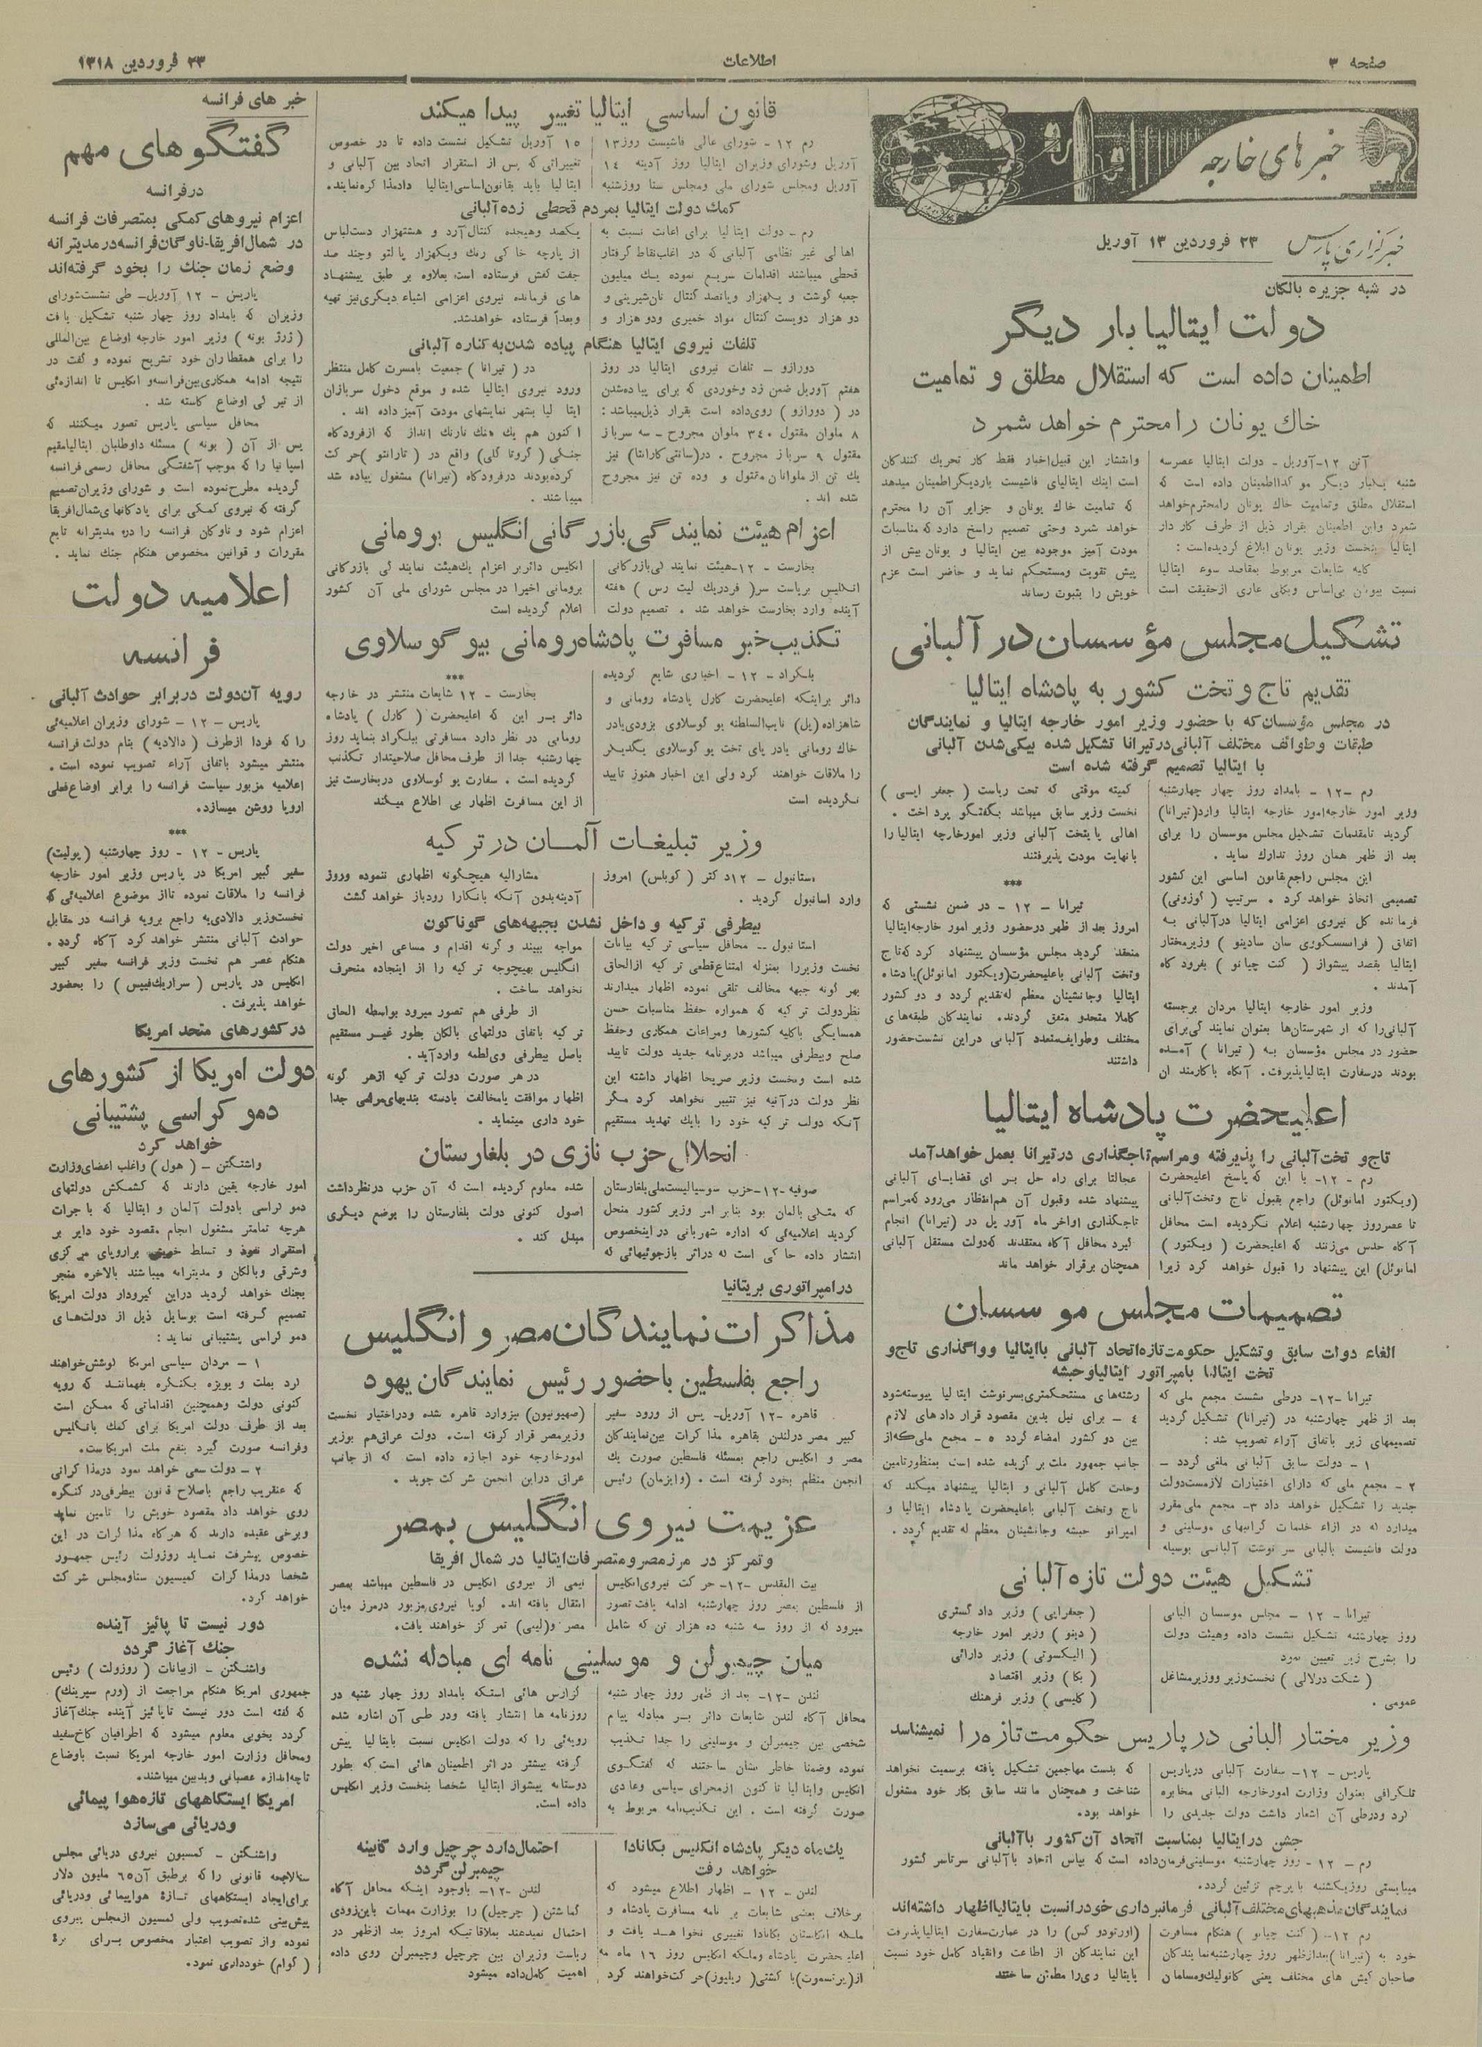 صفحه ۳
اطلاعات
۲۳ فروردین ۱۳۱۸
خبرهای خارجه
خبرگزاری پارس
۲۳ فروردین ۱۳ آوریل
در شبه جزیره بالکان
دولت ایتالیا بار دیگر
اطمینان داده است که استقلال مطلق و تمامیت
خاك یونان را محترم خواهد شمرد
آتن ۱۲- آوریل - دولت ایتالیا عصر سه
شنبه یکبار دیگر مؤکدا اطمینان داده است که
استقلال مطلق و تمامیت خاك یونان را محترم خواهد
شمرد و این اطمینان بقرار ذیل از طرف کاردار
ایتالیا بنخست وزیر یونان ابلاغ گردیده است :
کلیه شایعات مربوط بمقاصد سوء ایتالیا
نسبت بیونان بی‌اساس و بکلی عاری از حقیقت است
و انتشار این قبیل اخبار فقط کار تحریك کنندگان
است اینك ایتالیای فاشیست بار دیگر اطمینان میدهد
که تمامیت خاك یونان و جزایر آن را محترم
خواهد شمرد و حتی تصمیم راسخ دارد که مناسبات
مودت آمیز موجوده بین ایتالیا و یونان بیش از
پیش تقویت و مستحکم نماید و حاضر است عزم
خویش را بثبوت رساند
تشکیل مجلس مؤسسان در آلبانی
تقدیم تاج و تخت کشور به پادشاه ایتالیا
در مجلس مؤسسان که با حضور وزیر امور خارجه ایتالیا و نمایندگان
طبقات و طوائف مختلف آلبانی در تیرانا تشکیل شده بیکی شدن آلبانی
با ایتالیا تصمیم گرفته شده است
رم -۱۲- بامداد روز چهار چهارشنبه
وزیر امور خارجه امور خارجه ایتالیا وارد (تیرانا)
گردید تا مقدمات تشکیل مجلس موسسان را برای
بعد از ظهر همان روز تدارك نماید .
این مجلس راجع بقانون اساسی این کشور
تصمیمی اتخاذ خواهد کرد . سرتیپ ( گوزونی)
فرمانده کل نیروی اعزامی ایتالیا در آلبانی به
اتفاق ( فرانسسکوری سان سادینو ) وزیر مختار
ایتالیا بقصد پیشواز ( کنت چیانو ) بفرودگاه
آمدند .
وزیر امور خارجه ایتالیا مردان برجسته
آلبانی را که از شهرستان‌ها بعنوان نمایندگی برای
حضور در مجلس مؤسسان به ( تیرانا ) آمده
بودند در سفارت ایتالیا پذیرفت. آنگاه با کارمندان
کمیته موقتی که تحت ریاست ( جعفر ایسی )
نخست وزیر سابق میباشد بگفتگو پرداخت .
اهالی پایتخت آلبانی وزیر امور خارجه ایتالیا را
با نهایت مودت پذیرفتند
***
تیرانا - ۱۲ - در ضمن نشستی که
امروز بعد از ظهر در حضور وزیر امور خارجه ایتالیا
منعقد گردید مجلس مؤسسان پیشنهاد کرد که تاج
و تخت آلبانی باعلیحضرت (ویکتور امانوئل) پادشاه
ایتالیا و جانشینان معظم له تقدیم گردد و دو کشور
کاملا متحد و متفق گردند. نمایندگان طبقه‌های
مختلف و طوایف متعدد آلبانی در این نشست حضور
داشتند
اعلیحضرت پادشاه ایتالیا
تاج و تخت آلبانی را پذیرفته و مراسم تاجگذاری در تیرانا بعمل خواهد آمد
رم -۱۲- با این که پاسخ اعلیحضرت
(ویکتور امانوئل) راجع بقبول تاج و تخت آلبانی
تا عصر روز چهارشنبه اعلام نگردیده است محافل
آگاه حدس میزنند که اعلیحضرت ( ویکتور )
امانوئل) این پیشنهاد را قبول خواهد کرد زیرا
عجالتا برای راه حل برای قضایای آلبانی
پیشنهاد شده و قبول آن هم انتظار می‌رود که مراسم
تاجگذاری اواخر ماه آوریل در (تیرانا) انجام
گیرد محافل آگاه معتقدند که دولت مستقل آلبانی
همچنان برقرار خواهد ماند
تصمیمات مجلس موسسان
الغاء دولت سابق و تشکیل حکومت تازه اتحاد آلبانی با ایتالیا و واگذاری تاج و
تخت ایتالیا بامپراتور ایتالیا و حبشه
تیرانا -۱۲- در طی نشست مجمع ملی که
بعد از ظهر چهارشنبه در (تیرانا) تشکیل گردید
تصمیمهای زیر باتفاق آراء تصویب شد :
۱ - دولت سابق آلبانی ملغی گردد -
۲ - مجمع ملی که دارای اختیارات لازمست دولت
جدید را تشکیل خواهد داد ۳- مجمع ملی مقرر
میدارد که در ازاء خدمات گرانبهای موسلینی و
دولت فاشیست بالبانی سرنوشت آلبانی بوسیله
رشته‌های مستحکمتری بسرنوشت ایتالیا پیوسته شود
٤ - برای نیل بدین مقصود قراردادهای لازم
بین دو کشور امضاء گردد ٥ - مجمع ملی که از
جانب جمهور ملت برگزیده شده است بمنظور تامین
وحدت کامل آلبانی و ایتالیا پیشنهاد میکند که
تاج و تخت آلبانی باعلیحضرت پادشاه ایتالیا و
امپراتور حبشه و جانشینان معظم له تقدیم گردد .
تشکیل هیئت دولت تازه آلبانی
تیرانا - ۱۲ - مجلس موسسان البانی
روز چهارشنبه تشکیل نشست داده و هیئت دولت
را بشرح زیر تعیین نمود
( شکت ورلاتی ) نخست وزیر و وزیر مشاغل
عمومی .
( جعفرایی ) وزیر دادگستری
( دینو ) وزیر امور خارجه
( الیکسوتی ) وزیر دارائی
( بکا ) وزیر اقتصاد
( کلیسی ) وزیر فرهنگ
وزیر مختار البانی در پاریس حکومت تازه را نمیشناسد
پاریس - ۱۲ - سفارت آلبانی در پاریس
تلگرافی بعنوان وزارت امور خارجه البانی مخابره
کرد و در طی آن اشعار داشت دولت جدیدی را
که بدست مهاجمین تشکیل یافته برسمیت نخواهد
شناخت و همچنان مانند سابق بکار خود مشغول
خواهد بود.
جشن در ایتالیا بمناسبت اتحاد آن کشور با آلبانی
رم - ۱۲ - روز چهارشنبه موسلینی فرمان داده است که بپاس اتحاد با آلبانی سرتاسر کشور
میبایستی روز یکشنبه با پرچم تزئین گردد.
نمایندگان مذهبهای مختلف آلبانی فرمانبرداری خود را نسبت بایتالیا اظهار داشته‌اند
رم ۱۲- ( کنت چیانو ) هنگام مسافرت
خود به (تیرانا) بعد از ظهر روز چهارشنبه نمایندگان
صاحبان کیش های مختلف یعنی کاتولیك و مسلمان
(اورتودو کس) را در عمارت سفارت ایتالیا پذیرفت
این نمایندگان از اطاعت و انقیاد کامل خود نسبت
بایتالیا وی را مطمئن ساختند
قانون اساسی ایتالیا تغییر پیدا میکند
رم ۱۲ - شورای عالی فاشیست روز ۱۳
آوریل و شورای وزیران ایتالیا روز آدینه ۱٤
آوریل و مجلس شورای ملی و مجلس سنا روز شنبه
۱٥ آوریل تشکیل نشست داده تا در خصوص
تغییراتی که پس از استقرار اتحاد بین آلبانی و
ایتالیا باید بقانون اساسی ایتالیا داد مذاکره نمایند.
کمك دولت ایتالیا بمردم قحطی زده آلبانی
رم - دولت ایتالیا برای اعانت نسبت به
اهالی غیر نظامی آلبانی که در اغلب نقاط گرفتار
قحطی میباشند اقدامات سریع نموده یك میلیون
جعبه گوشت و یکهزار و پانصد کنتال نان شیرینی و
دو هزار دویست کنتال مواد خمیری و دو هزار و
یکصد و هیجده کنتال آرد و هشتهزار دست لباس
از پارچه خاکی رنگ و یکهزار پالتو و چند صد
جفت کفش فرستاده است. بعلاوه بر طبق پیشنهاد
های فرمانده نیروی اعزامی اشیاء دیگری نیز تهیه
و بعداً فرستاده خواهد شد.
تلفات نیروی ایتالیا هنگام پیاده شدن به کناره آلبانی
دورازو - تلفات نیروی ایتالیا در روز
هفتم آوریل ضمن زد و خوردی که برای پیاده شدن
در ( دورازو ) روی داده است بقرار ذیل میباشد :
۸ ملوان مقتول ۳٤۰ ملوان مجروح - سه سرباز
مقتول ۹ سرباز مجروح . در (سانتی کارانتا) نیز
یك تن از ملوانان مقتول و وده تن نیز مجروح
شده اند .
در ( تیرانا ) جمعیت با مسرت کامل منتظر
ورود نیروی ایتالیا شده و موقع دخول سربازان
ایتالیا بشهر نمایشهای مودت آمیز داده اند .
اکنون هم یك هنگ نارنك انداز که از فرودگاه
جنگی ( گروتا گلی) واقع در ( تارانتو) حرکت
کرده بودند در فرودگاه (تیرانا) مشغول پیاده شد
میباشند .
اعزام هیئت نمایندگی بازرگانی انگلیس برومانی
بخارست - ۱۲- هیئت نمایندگی بازرگانی
انگلیس بریاست سر( فردریك لیت رس ) هفته
آینده وارد بخارست خواهد شد . تصمیم دولت
انگلیس دائر بر اعزام یك هیئت نمایندگی بازرگانی
برومانی اخیرا در مجلس شورای ملی آن کشور
اعلام گردیده است
تکذیب خبر مسافرت پادشاه رومانی بیوگوسلاوی
بلگراد - ۱۲ - اخباری شایع گردیده
دائر براینکه اعلیحضرت کارل پادشاه رومانی و
شاهزاده (پل) نایب السلطنه یوگوسلاوی بزودی یا در
خاك رومانی یا در پای تخت یوگوسلاوی یکدیگر
را ملاقات خواهند کرد ولی این اخبار هنوز تایید
نگردیده است
***
بخارست - ۱۲ شایعات منتشر در خارجه
دائر بسر این که اعلیحضرت ( کارل ) پادشاه
رومانی در نظر دارد مسافرتی ببلگراد بنماید روز
چهارشنبه جدا از طرف محافل صلاحیتدار تکذیب
گردیده است . سفارت یوگوسلاوی در بخارست نیز
از این مسافرت اظهار بی اطلاع میکند
وزیر تبلیغات آلمان در ترکیه
ستانبول - ۱۲ دکتر ( گوبلس) امروز
وارد اسانبول گردید .
مشارالیه هیچگونه اظهاری ننموده و روز
آدینه بدون آنکه بآنکارا رود باز خواهد گشت
بیطرفی ترکیه و داخل نشدن بجبهه‌های گوناگون
استانبول -- محافل سیاسی ترکیه بیانات
نخست وزیر را بمنزله امتناع قطعی ترکیه از الحاق
بهر گونه جبهه مخالف تلقی نموده اظهار میدارند
نظر دولت ترکیه که همواره حفظ مناسبات حسن
همسایگی با کلیه کشورها و مراعات همکاری و حفظ
صلح و بیطرفی میباشد در برنامه جدید دولت تایید
شده است و نخست وزیر صریحا اظهار داشته این
نظر دولت در آتیه نیز تغییر نخواهد کرد مگر
آنکه دولت ترکیه خود را بایك تهدید مستقیم
مواجه ببیند و گرنه اقدام و مساعی اخیر دولت
انگلیس بهیچوجه ترکیه را از اینجاده منحرف
نخواهد ساخت .
از طرفی هم تصور میرود بواسطه الحاق
ترکیه باتفاق دولتهای بالکان بطور غیر مستقیم
باصل بیطرفی وی لطمه وارد آید .
در هر صورت دولت ترکیه از هر گونه
اظهار موافقت یا مخالفت با دسته بندیهای مرامی جدا
خود داری مینماید .
انحلال حزب نازی در بلغارستان
صوفیه -۱۲- حزب سوسیالیست ملی بلغارستان
که متکی بالمان بود بنابر امر وزیر کشور منحل
گردید اعلامیه‌ئی که اداره شهربانی در اینخصوص
انتشار داده حاکی است که در اثر بازجوئیهائی که
شده معلوم گردیده است که آن حزب در نظر داشت
اصول کنونی دولت بلغارستان را بوضع دیگری
مبدل کند .
در امپراتوری بریتانیا
مذاکرات نمایندگان مصر و انگلیس
راجع بفلسطین با حضور رئیس نمایندگان یهود
قاهره -۱۲ آوریل- پس از ورود سفیر
کبیر مصر در لندن بقاهره مذاکرات بین نمایندگان
مصر و انگلیس راجع بمسئله فلسطین صورت یك
انجمن منظم بخود گرفته است . (وایزمان) رئیس
(صهیونیون) نیز وارد قاهره شده و در اختیار نخست
وزیر مصر قرار گرفته است. دولت عراق هم بوزیر
امور خارجه خود اجازه داده است که از جانب
عراق در این انجمن شرکت جوید .
عزیمت نیروی انگلیس بمصر
و تمرکز در مرز مصر و متصرفات ایتالیا در شمال افریقا
بیت المقدس -۱۲- حرکت نیروی انگلیس
از فلسطین بمصر روز چهارشنبه ادامه یافت تصور
میرود که از روز سه شنبه ده هزار تن که شامل
نیمی از نیروی انگلیس در فلسطین میباشد بمصر
انتقال یافته اند. گویا نیروی مزبور در مرز میان
مصر و(لیبی) تمرکز خواهند یافت.
میان چیمبرلن و موسلینی نامه ای مبادله نشده
لندن -۱۲- بعد از ظهر روز چهارشنبه
محافل آگاه لندن شایعات دائر بر مبادله پیام
شخصی بین چیمبرلن و موسلینی را جدا تکذیب
نموده و ضمنا خاطر نشان ساختند که گفتگوی
انگلیس و ایتالیا تاکنون از مجرای سیاسی و عادی
صورت گرفته است . این تکذیب نامه مربوط به
گزارش هائی استکه بامداد روز چهارشنبه در
روزنامه‌ها انتشار یافته و در طی آن اشاره شده
رویه‌ئی را که دولت انگلیس نسبت بایتالیا پیش
گرفته بیشتر در اثر اطمینان هائی است که بطور
دوستانه پیشواز ایتالیا شخصا بنخست وزیر انگلیس
داده است.
یك ماه دیگر پادشاه انگلیس بکانادا
خواهد رفت
لندن - ۱۲ - اظهار اطلاع میشود که
برخلاف بعضی شایعات برنامه مسافرت پادشاه و
ملکه انگلستان بکانادا تغییری نخواهد یافت و
اعلیحضرت پادشاه و ملکه انگلیس روز ۱٦ ماه مه
از (پرتسموت) با کشتی ( ریلیوز) حرکت خواهند کرد
احتمال دارد چرچیل وارد کابینه
چیمبرلن گردد
لندن -۱۲- باوجود اینکه محافل آگاه
گماشتن ( چرچیل) را بوزارت مهمات باین زودی
احتمال نمیدهند بملاقاتیکه امروز بعد از ظهر در
ریاست وزیران بین چرچیل و چیمبرلن روی داده
اهمیت کامل داده میشود
خبرهای فرانسه
گفتگوهای مهم
در فرانسه
اعزام نیروهای کمکی بمتصرفات فرانسه
در شمال افریقا- ناوگان فرانسه در مدیترانه
وضع زمان جنك را بخود گرفته‌اند
پاریس - ۱۲ آوریل- طی نشست شورای
وزیران که بامداد روز چهارشنبه تشکیل یافت
(ژرژ بونه ) وزیر امور خارجه اوضاع بین‌المللی
را برای همقطاران خود تشریح نموده و گفت در
نتیجه ادامه همکاری بین فرانسه و انگلیس تا اندازه‌ئی
از تیرگی اوضاع کاسته شد .
محافل سیاسی پاریس تصور میکنند که
پس از آن ( بونه ) مسئله داوطلبان ایتالیا مقیم
اسپانیا را که موجب آشفتگی محافل رسمی فرانسه
گردیده مطرح نموده است و شورای وزیران تصمیم
گرفته که نیروی کمکی برای پادگانهای شمال افریقا
اعزام شود و ناوگان فرانسه را در مدیترانه تابع
مقررات و قوانین مخصوص هنگام جنك نماید .
اعلامیه دولت
فرانسه
رویه آن دولت در برابر حوادث آلبانی
پاریس - ۱۲ - شورای وزیران اعلامیه‌ئی
را که فردا از طرف ( دالادیه ) بنام دولت فرانسه
منتشر میشود باتفاق آراء تصویب نموده است .
اعلامیه مزبور سیاست فرانسه را برابر اوضاع فعلی
اروپا روشن میسازد.
***
پاریس - ۱۲ - روز چهارشنبه (بولیت)
سفیر کبیر امریکا در پاریس وزیر امور خارجه
فرانسه را ملاقات نموده تا از موضوع اعلامیه‌ئی که
نخست وزیر دالادیه راجع برویه فرانسه در مقابل
حوادث آلبانی منتشر خواهد کرد آگاه گردد .
هنگام عصر هم نخست وزیر فرانسه سفیر کبیر
انگلیس در پاریس ( سراریك فیپس ) را بحضور
خواهد پذیرفت.
در کشورهای متحد امریکا
دولت امریکا از کشورهای
دموکراسی پشتیبانی
خواهد کرد
واشنگتن - ( هول ) و اغلب اعضای وزارت
امور خارجه یقین دارند که کشمکش دولتهای
دموکراسی با دولت آلمان و ایتالیا که با جرات
هرچه تمامتر مشغول انجام مقصود خود دایر بر
استقرار نفوذ و تسلط خویش بر اروپای مرکزی
و شرقی و بالکان و مدیترانه میباشند بالاخره منجر
بجنك خواهد گردید در این گیرودار دولت امریکا
تصمیم گرفته است بوسایل ذیل از دولت‌های
دموکراسی پشتیبانی نماید :
۱ - مردان سیاسی امریکا کوشش خواهند
کرد بملت و بویژه بکنگره بفهمانند که رویه
کنونی دولت و همچنین اقداماتی که ممکن است
بعد از طرف دولت امریکا برای کمك بانگلیس
و فرانسه صورت گیرد بنفع ملت امریکاست.
۲ - دولت سعی خواهد نمود در مذاکراتی
که عنقریب راجع باصلاح قانون بیطرفی در کنگره
روی خواهد داد مقصود خویش را تامین نماید
و برخی عقیده دارند که هرگاه مذاکرات در این
خصوص پیشرفت ننماید روزولت رئیس جمهور
شخصا در مذاکرات کمیسیون سنا و مجلس شرکت
خواهد کرد.
دور نیست تا پائیز آینده
جنك آغاز گردد
واشنگتن - از بیانات ( روزولت ) رئیس
جمهوری امریکا هنگام مراجعت از (ورم سپرینك)
که گفته است دور نیست تا پائیز آینده جنك آغاز
گردد بخوبی معلوم میشود که اطرافیان کاخ سفید
و محافل وزارت امور خارجه امریکا نسبت باوضاع
تاچه اندازه عصبانی و بدبین میباشند.
امریکا ایستگاههای تازه هوا پیمائی
و دریائی می‌سازد
واشنگتن - کمسیون نیروی دریائی مجلس
سنا لایحه قانونی را که بر طبق آن ٦٥ ملیون دلار
برای ایجاد ایستگاههای تازۀ هواپیمائی و دریائی
پیش‌بینی شده تصویب ولی کمسیون از مجلس پیروی
نموده و از تصویب اعتبار مخصوص برای بره
( گوام ) خودداری نمود.